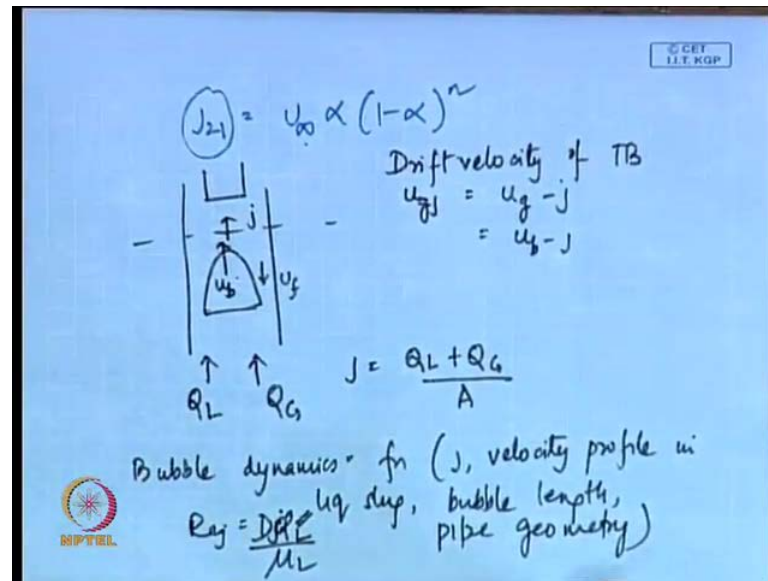 © CET
I.I.T. KGP
J₂₁ = u∞ α (1-α)ⁿ
Drift velocity of TB
u_gj = u_g - j
= u_b - j
j
u_b
u_f
Q_L Q_G
J = (Q_L + Q_G) / A
Bubble dynamics = fn (J, velocity profile in
liq slug, bubble length,
pipe geometry)
Re_j = Djρ_L / μ_L
NPTEL